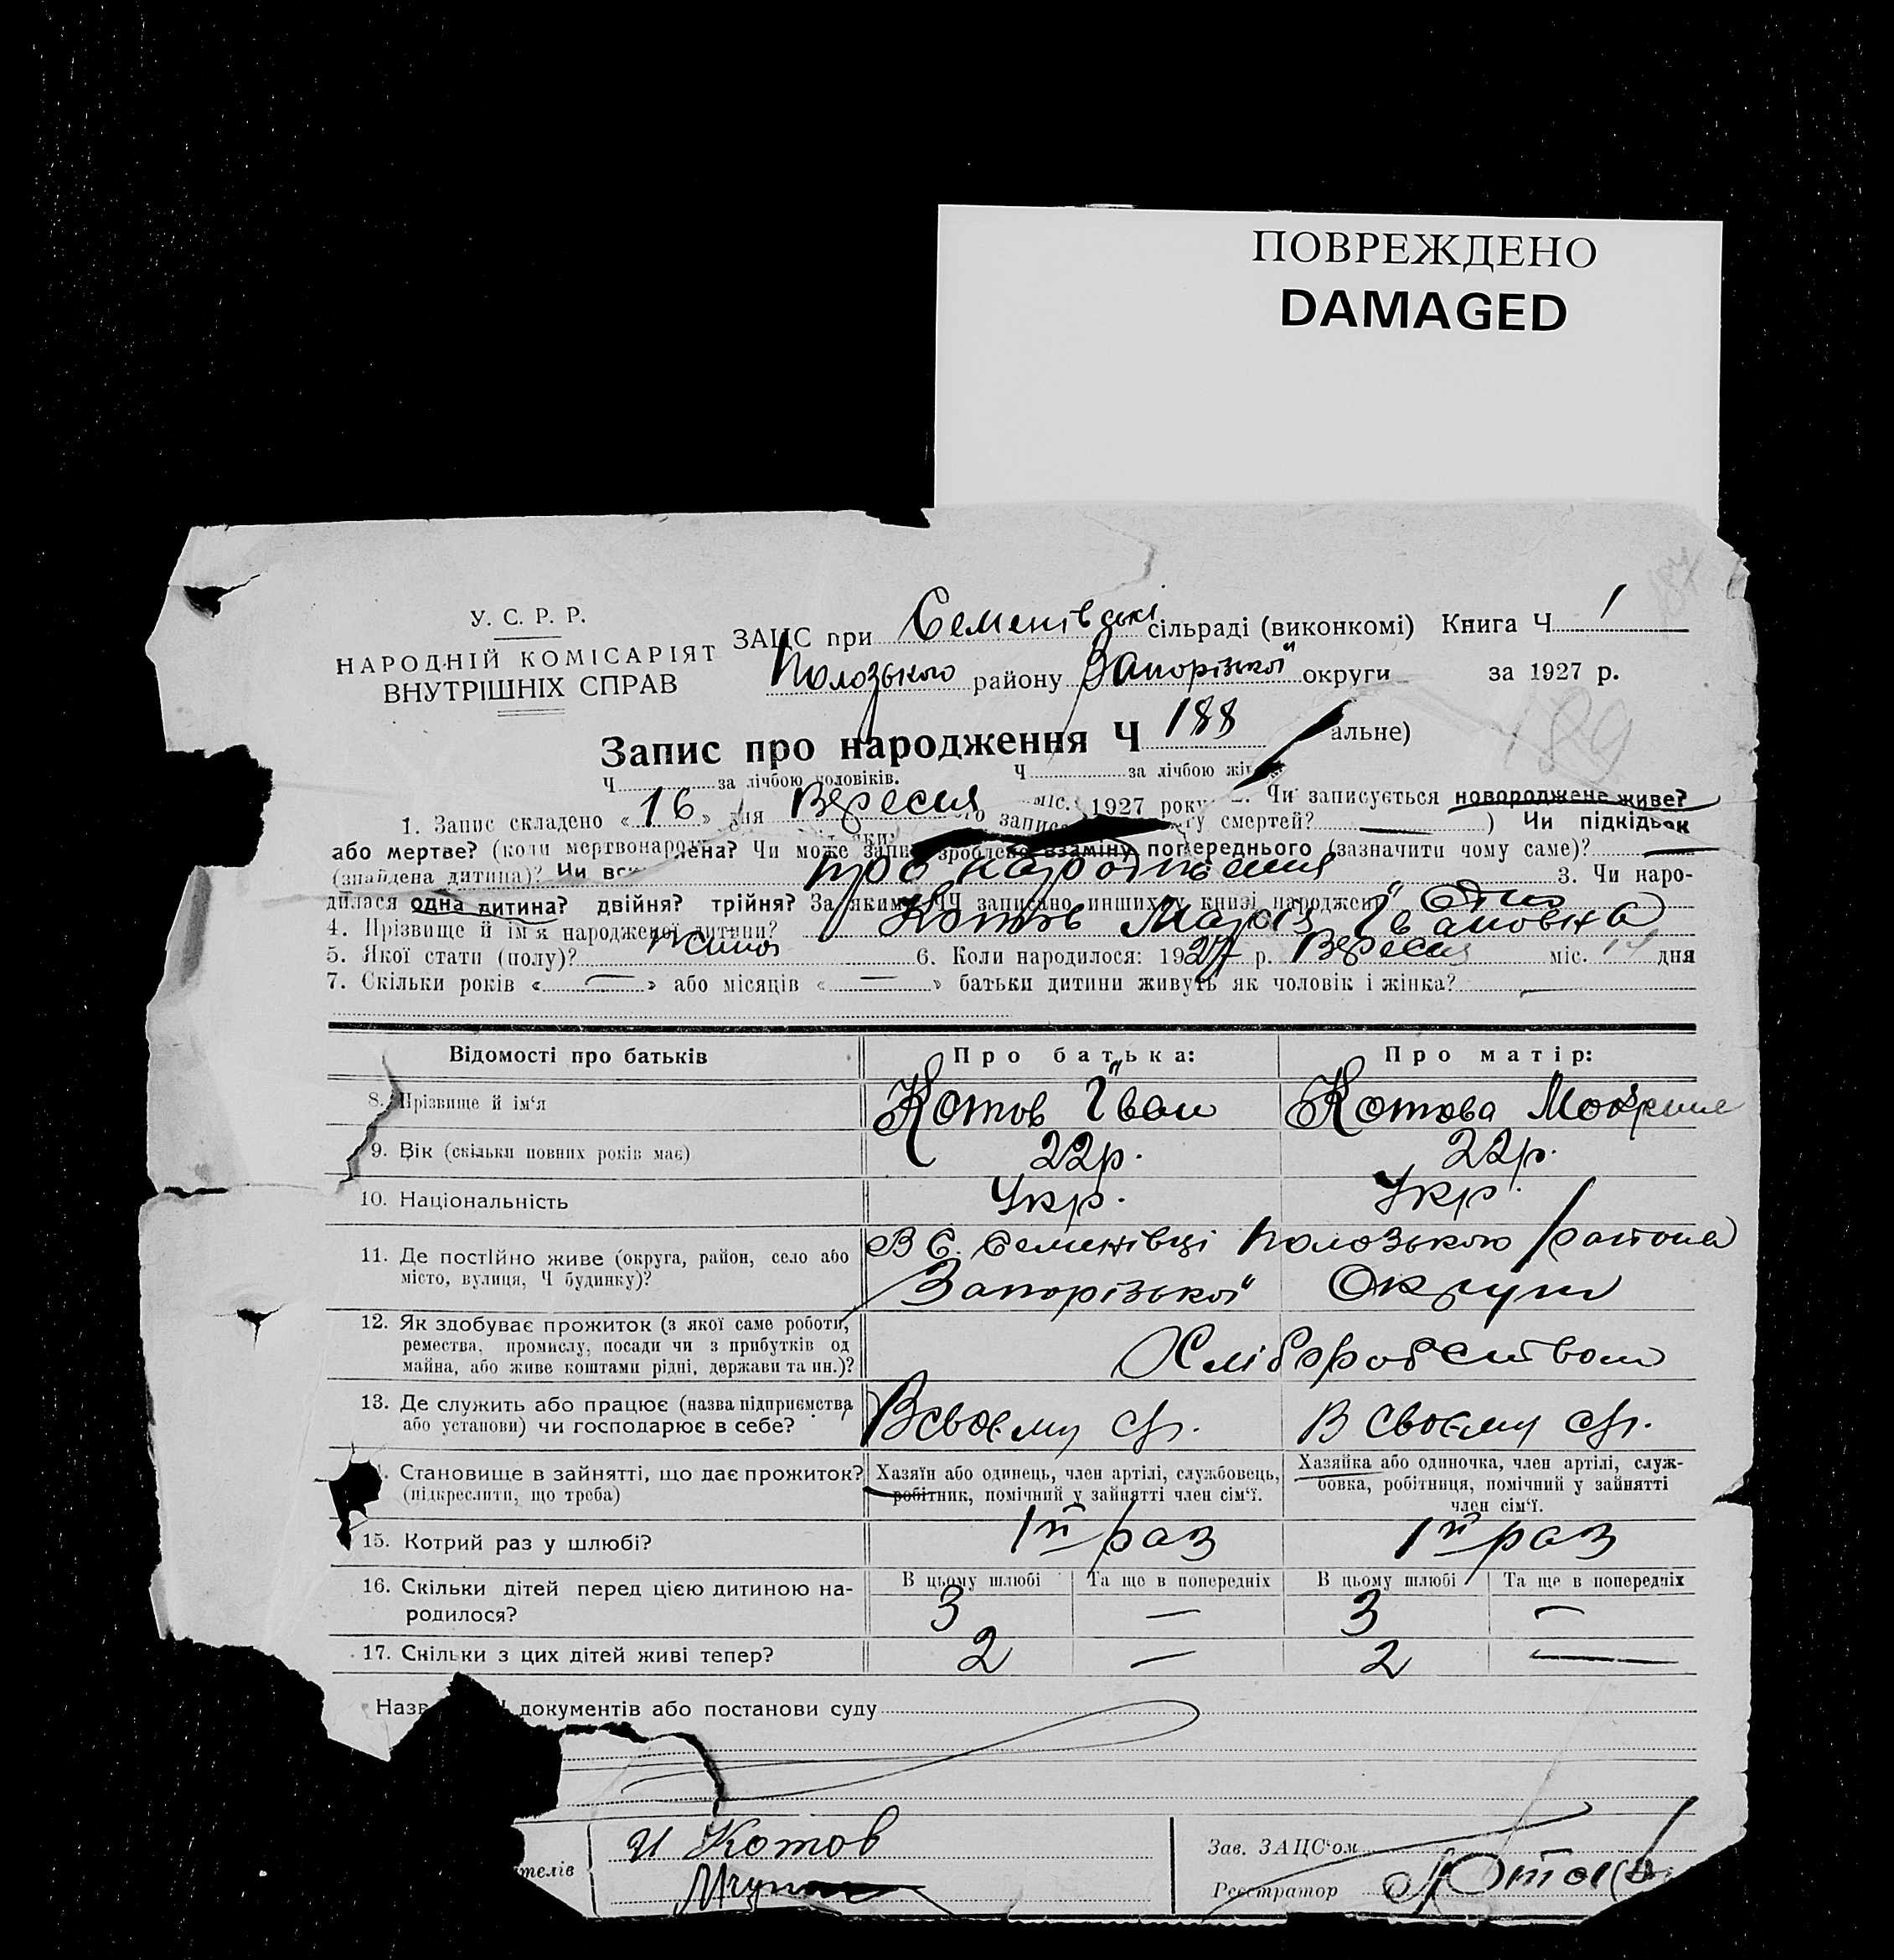 ПОВРЕЖДЕНО
DAMAGED
У. С. Р. Р.
НАРОДНІЙ КОМІСАРІЯТ
ВНУТРІШНІХ СПРАВ
ЗАЦС при Семенівські сільраді (виконкомі) Книга Ч 1
Полозького району Запорізької округи за 1927 р.
189
Запис про народження Ч 188 альне)
Ч за лічбою чоловіків. Ч за лічбою
1. Запис складено « 16 » дня Вересня міс. 1927 року Чи записується новороджене живе?
або мертве? (коли мертвонароджена? смертей? — ) Чи підкідьок
(знайдена дитина)? Чи може зроблено взаміну попереднього (зазначити чому саме)? —
про народження 3. Чи наро-
дилася одна дитина? двійня? трійня? За якими ЧЧ записано инших у книзі народжень Одно
4. Прізвище й ім'я народженої дитини? Котов Марія Івановна
5. Якої стати (полу)? жіноч 6. Коли народилося: 1927 р. Вересня міс. 14 дня
7. Скільки років «—» або місяців «—» батьки дитини живуть як чоловік і жінка? —
Відомості про батьків Про батька: Про матір:
8. Прізвище й ім'я Котов Іван Котова
9. Вік (скільки повних років має) 22р. 22р.
10. Національність Укр. Укр.
11. Де постійно живе (округа, район, село або місто, вулиця, Ч будинку)? В С. Семенівці Полозького района
Запорізької Округи
12. Як здобуває прожиток (з якої саме роботи,
ремества, промислу, посади чи з прибутків од
майна, або живе коштами рідні, держави та ин.)? Хліборобством
13. Де служить або працює (назва підприємства
або установи) чи господарює в себе? В своєму В своєму
Становище в зайнятті, що дає прожиток?
(підкреслити, що треба)
Хазяїн або одинець, член артілі, службовець,
робітник, помічний у зайнятті член сім'ї.
Хазяйка або одиночка, член артілі, служ-
бовка, робітниця, помічний у зайнятті
член сім'ї.
15. Котрий раз у шлюбі? 1й раз 1й раз
16. Скільки дітей перед цією дитиною на-
родилося?
В цьому шлюбі Та ще в попередніх В цьому шлюбі Та ще в попередніх
3 — 3 —
17. Скільки з цих дітей живі тепер? 2 — 2 —
Назв документів або постанови суду
телів И Котов
Зав. ЗАЦС'ом
Реєстратор